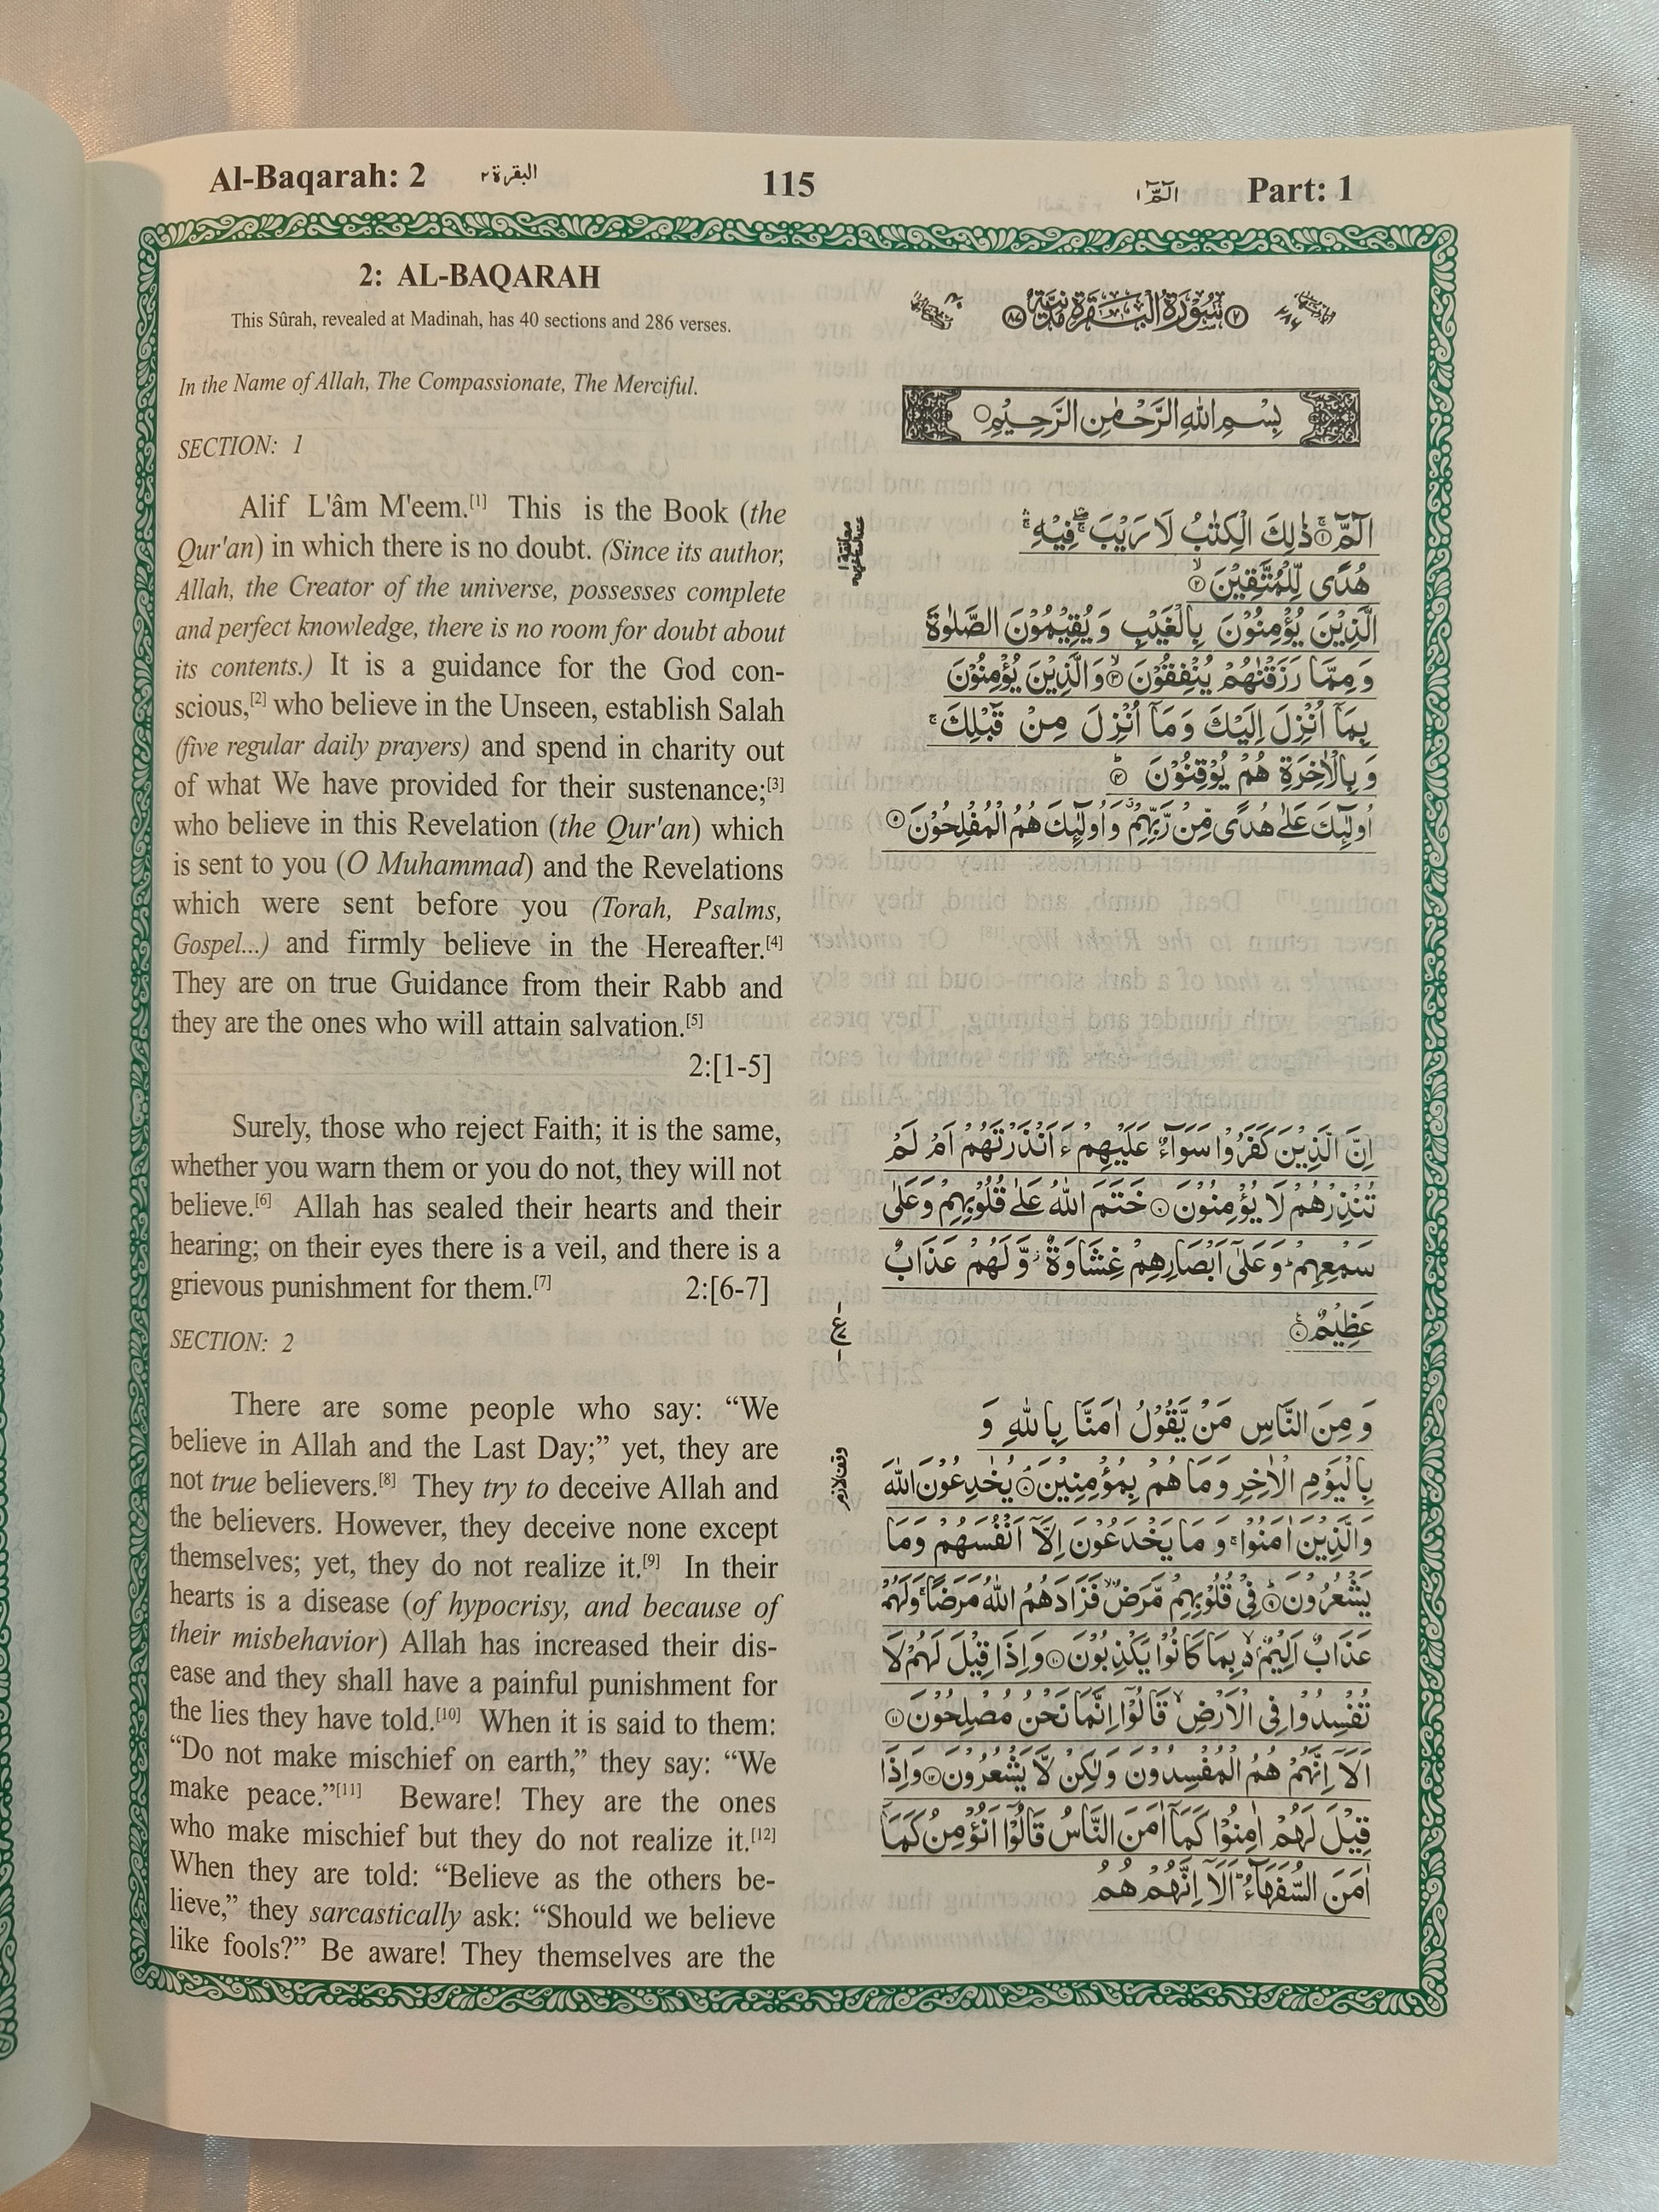 Al-Baqarah: 2 البقرة ٢ 115 الٓمّٓ ١ Part: 1
2: AL-BAQARAH
This Sûrah, revealed at Madinah, has 40 sections and 286 verses.
In the Name of Allah, The Compassionate, The Merciful.
SECTION: 1
Alif L'âm M'eem.[1] This is the Book (the
Qur'an) in which there is no doubt. (Since its author,
Allah, the Creator of the universe, possesses complete
and perfect knowledge, there is no room for doubt about
its contents.) It is a guidance for the God con-
scious,[2] who believe in the Unseen, establish Salah
(five regular daily prayers) and spend in charity out
of what We have provided for their sustenance;[3]
who believe in this Revelation (the Qur'an) which
is sent to you (O Muhammad) and the Revelations
which were sent before you (Torah, Psalms,
Gospel...) and firmly believe in the Hereafter.[4]
They are on true Guidance from their Rabb and
they are the ones who will attain salvation.[5]
2:[1-5]
Surely, those who reject Faith; it is the same,
whether you warn them or you do not, they will not
believe.[6] Allah has sealed their hearts and their
hearing; on their eyes there is a veil, and there is a
grievous punishment for them.[7] 2:[6-7]
SECTION: 2
There are some people who say: “We
believe in Allah and the Last Day;” yet, they are
not true believers.[8] They try to deceive Allah and
the believers. However, they deceive none except
themselves; yet, they do not realize it.[9] In their
hearts is a disease (of hypocrisy, and because of
their misbehavior) Allah has increased their dis-
ease and they shall have a painful punishment for
the lies they have told.[10] When it is said to them:
“Do not make mischief on earth,” they say: “We
make peace.”[11] Beware! They are the ones
who make mischief but they do not realize it.[12]
When they are told: “Believe as the others be-
lieve,” they sarcastically ask: “Should we believe
like fools?” Be aware! They themselves are the
٢ سُوْرَةُ الْبَقَرَةِ مَدَنِيَّةٌ ٨٧
بِسْمِ اللّٰهِ الرَّحْمٰنِ الرَّحِيْمِ
الٓمّٓ ۚ﴿١﴾ ذٰلِكَ الْكِتٰبُ لَا رَيْبَ ۛۖ فِيْهِ ۛۚ
هُدًى لِّلْمُتَّقِيْنَ ۙ﴿٢﴾
الَّذِيْنَ يُؤْمِنُوْنَ بِالْغَيْبِ وَ يُقِيْمُوْنَ الصَّلٰوةَ
وَ مِمَّا رَزَقْنٰهُمْ يُنْفِقُوْنَ ۙ﴿٣﴾ وَ الَّذِيْنَ يُؤْمِنُوْنَ
بِمَاۤ اُنْزِلَ اِلَيْكَ وَ مَاۤ اُنْزِلَ مِنْ قَبْلِكَ ۚ
وَ بِالْاٰخِرَةِ هُمْ يُوْقِنُوْنَ ؕ﴿٤﴾
اُولٰٓئِكَ عَلٰى هُدًى مِّنْ رَّبِّهِمْ ۗ وَ اُولٰٓئِكَ هُمُ الْمُفْلِحُوْنَ ﴿٥﴾
اِنَّ الَّذِيْنَ كَفَرُوْا سَوَآءٌ عَلَيْهِمْ ءَاَنْذَرْتَهُمْ اَمْ لَمْ
تُنْذِرْهُمْ لَا يُؤْمِنُوْنَ ﴿٦﴾ خَتَمَ اللّٰهُ عَلٰى قُلُوْبِهِمْ وَ عَلٰى
سَمْعِهِمْ ؕ وَ عَلٰۤى اَبْصَارِهِمْ غِشَاوَةٌ ۫ وَّ لَهُمْ عَذَابٌ
عَظِيْمٌ ﴿٧﴾
وَ مِنَ النَّاسِ مَنْ يَّقُوْلُ اٰمَنَّا بِاللّٰهِ وَ
بِالْيَوْمِ الْاٰخِرِ وَ مَا هُمْ بِمُؤْمِنِيْنَ ۘ﴿٨﴾ يُخٰدِعُوْنَ اللّٰهَ
وَ الَّذِيْنَ اٰمَنُوْا ۚ وَ مَا يَخْدَعُوْنَ اِلَّاۤ اَنْفُسَهُمْ وَ مَا
يَشْعُرُوْنَ ؕ﴿٩﴾ فِيْ قُلُوْبِهِمْ مَّرَضٌ ۙ فَزَادَهُمُ اللّٰهُ مَرَضًا ۚ وَ لَهُمْ
عَذَابٌ اَلِيْمٌۢ ۙ بِمَا كَانُوْا يَكْذِبُوْنَ ﴿١٠﴾ وَ اِذَا قِيْلَ لَهُمْ لَا
تُفْسِدُوْا فِي الْاَرْضِ ۙ قَالُوْۤا اِنَّمَا نَحْنُ مُصْلِحُوْنَ ﴿١١﴾
اَلَاۤ اِنَّهُمْ هُمُ الْمُفْسِدُوْنَ وَ لٰكِنْ لَّا يَشْعُرُوْنَ ﴿١٢﴾ وَ اِذَا
قِيْلَ لَهُمْ اٰمِنُوْا كَمَاۤ اٰمَنَ النَّاسُ قَالُوْۤا اَنُؤْمِنُ كَمَاۤ
اٰمَنَ السُّفَهَآءُ ؕ اَلَاۤ اِنَّهُمْ هُمُ
وقف لازم